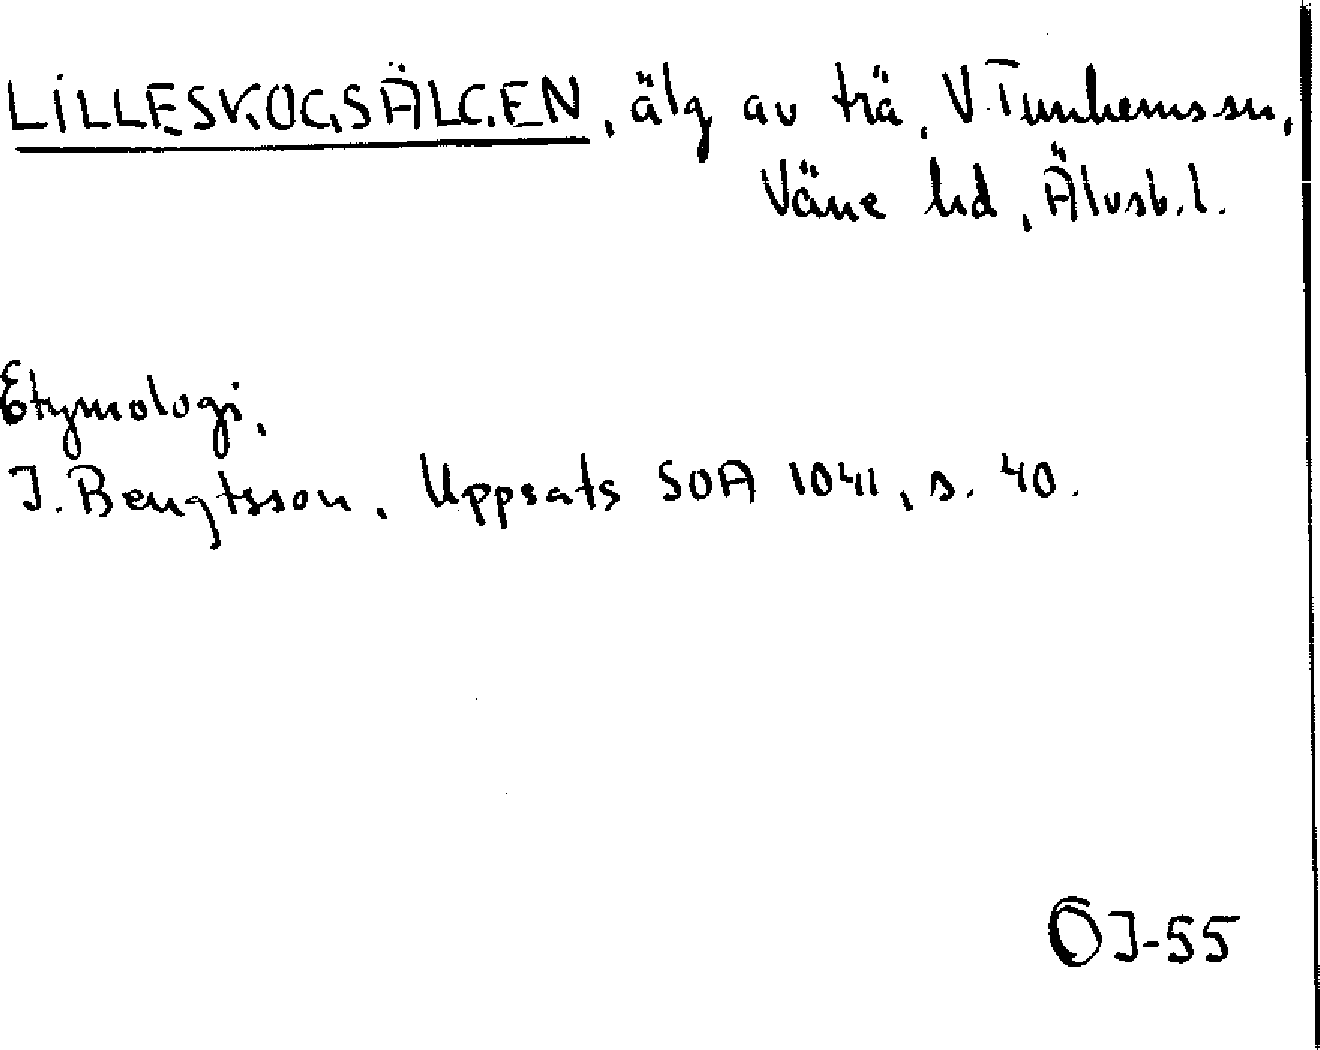 LILLESKOGSÄLGEN, älg av trä, V. Tunhems sn,
Väne hd, Älvsb. l.
Etymologi.
I. Bengtsson, Uppsats SOA 1041, s. 40.
ÖJ-55